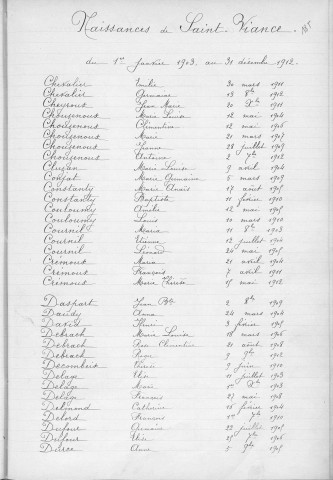 Naissances de Saint Viance.
du 1er janvier 1903 au 31 décembre 1912.
Chevalier Emilie 30 mars 1911
Chevalier Germaine 13 8bre 1912
Cheyroux Jean Marie 20 Xbre 1911
Chougenoux Marie Louise 12 mai 1906
Chougenoux Clémentine 12 mai
Chougenoux Marie 21 mars 1907
Chougenoux Jeanne 28 juillet 1909
Chougenoux Antoine 2 7bre 1912
Clusan Marie Louise 9 avril
Confat Marie Germaine 5 mars 1909
Constanty Marie Anaïs 17 août
Constanty Baptiste 11 février 1910
Couloumy Amélie 12 mai
Couloumy Louis 10 mars 1910
Cournil Maria 11 8bre 1903
Cournil Etienne 12 juillet 1904
Cournil Léonard 24 mai
Crémoux Maria 21 avril 1904
Crémoux François 7 avril 1911
Crémoux Marie Thérèse 15 mai 1912
Daspart Jean Bte 2 8bre 1909
Daudy Anna 24 mars 1904
David Henri 3 février
Debrach Marie Louise 18 mars 1906
Debrach Rose Clémentine 21 août 1908
Debrach 9bre 1912
Decombris 9 juin 1910
Delage 11 juillet 1903
Delage Marie 1er Xbre 1903
Delage François 27 mai 1908
Delmond Catherine 15 février 1904
Delord François 1er 7bre 1910
Dufour Germaine 22 juillet
Dufour 25 7bre
Durce Anna 5 9bre